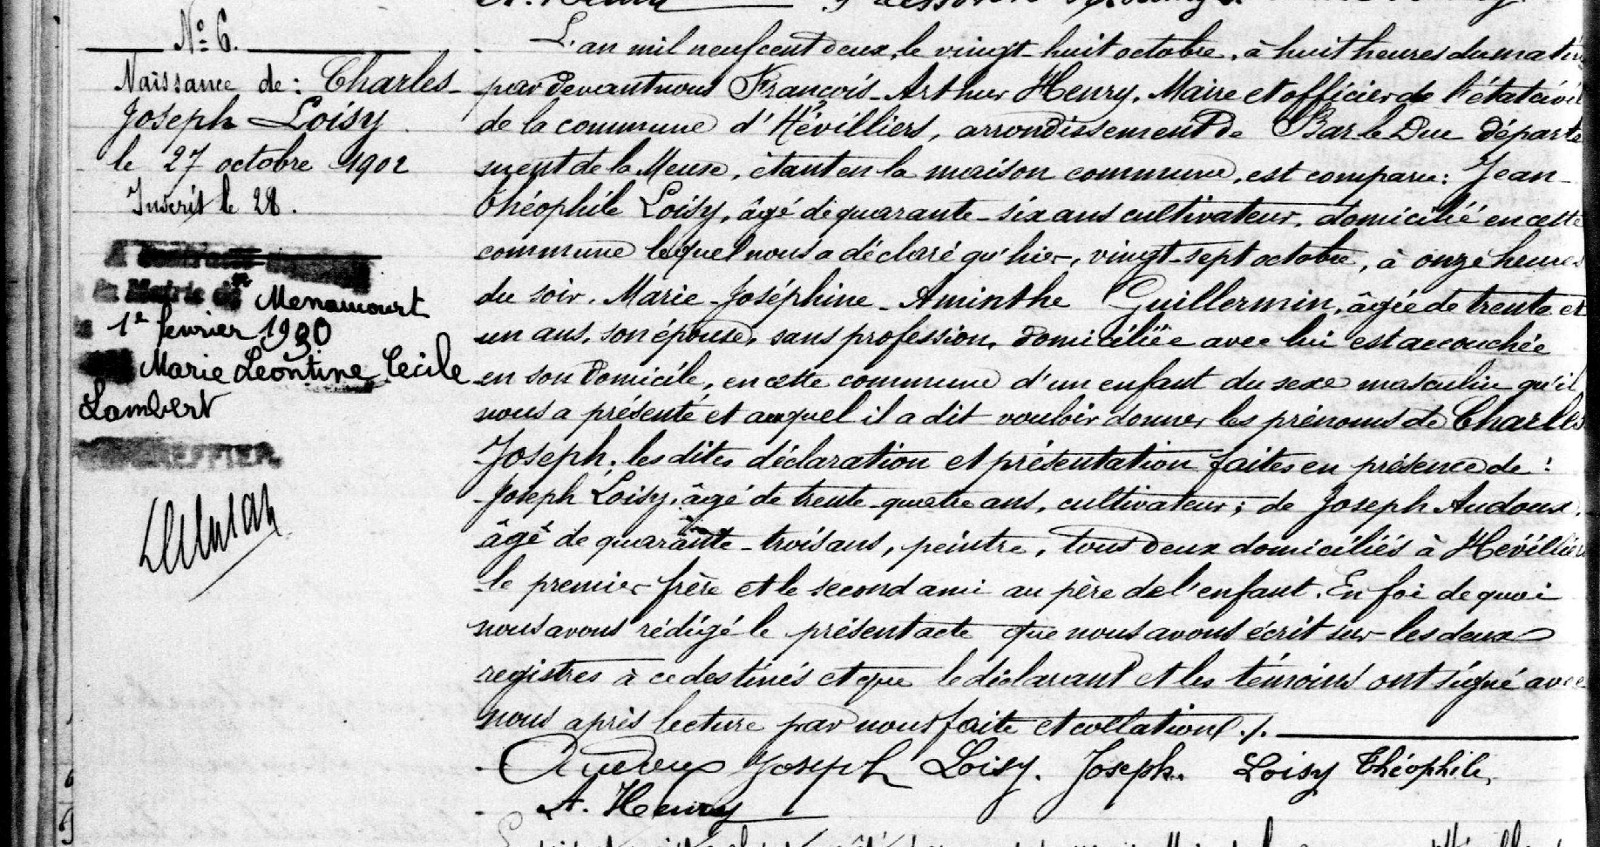 A. Henry
N° 6.
Naissance de : Charles
Joseph Loisy
le 27 octobre 1902
Inscrit le 28.
A contracté
la Mairie de Menaucourt
1er fevrier 1930
Marie Leontine Cecile
Lambert
GREFFIER.
L'an mil neuf cent deux, le vingt-huit octobre, à huit heures du matin
par devant nous François-Arthur Henry, Maire et officier de l'état civil
de la commune d'Hévilliers, arrondissement de Bar-le-Duc départe
ment de la Meuse, étant en la maison commune, est comparu : Jean-
Théophile Loisy, âgé de quarante-six ans cultivateur, domicilié en cette
commune lequel nous a déclaré qu'hier, vingt-sept octobre, à onze heures
du soir, Marie-Joséphine-Aminthe Guillermin, âgée de trente et
un ans, son épouse, sans profession, domiciliée avec lui est accouchée
en son domicile, en cette commune d'un enfant du sexe masculin qu'il
nous a présenté et auquel il a dit vouloir donner les prénoms de Charles
Joseph, les dites déclaration et présentation faites en présence de :
Joseph Loisy, âgé de trente-quatre ans, cultivateur ; de Joseph Audoux,
âgé de quarante-trois ans, peintre, tous deux domiciliés à Hévilliers
le premier frère et le second ami au père de l'enfant. En foi de quoi
nous avons rédigé le présent acte que nous avons écrit sur les deux
registres à ce destinés et que le déclarant et les témoins ont signé avec
nous après lecture par nous faite et collation ./.
Audoux Joseph Loisy. Joseph. Loisy Théophile,
A. Henry